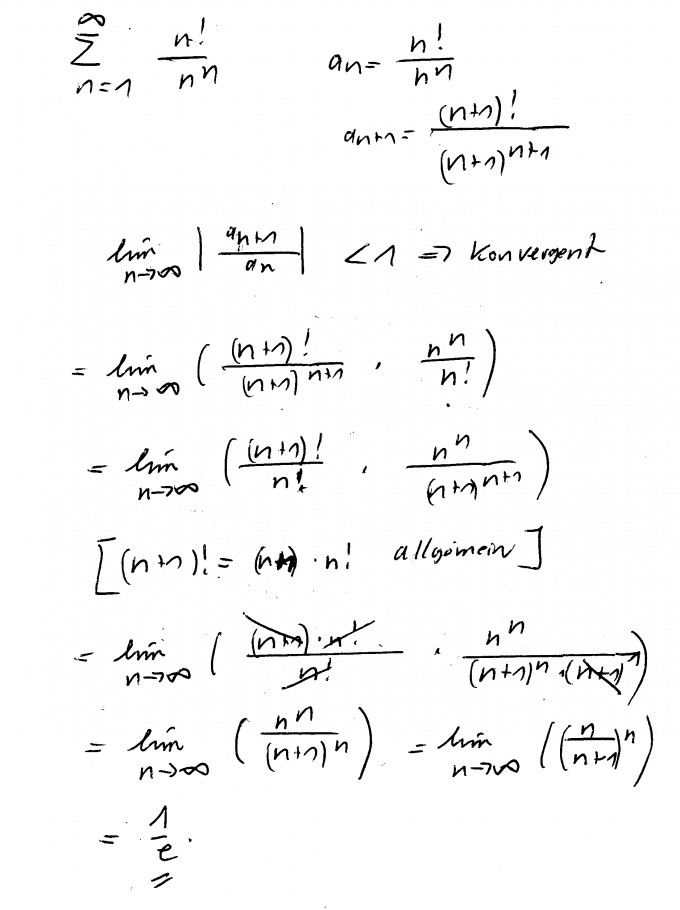 ∞
∑ n! / n^n    a_n = n! / n^n
n=1
a_{n+1} = (n+1)! / (n+1)^{n+1}
lim_{n→∞} | a_{n+1} / a_n | < 1 ⇒ Konvergent
= lim_{n→∞} ( (n+1)! / (n+1)^{n+1} · n^n / n! )
= lim_{n→∞} ( (n+1)! / n! · n^n / (n+1)^{n+1} )
[ (n+1)! = (n+1) · n! allgemein ]
= lim_{n→∞} ( (n+1) · n! / n! · n^n / (n+1)^n · (n+1)^1 )
= lim_{n→∞} ( n^n / (n+1)^n ) = lim_{n→∞} ( ( n / n+1 )^n )
= 1 / e .